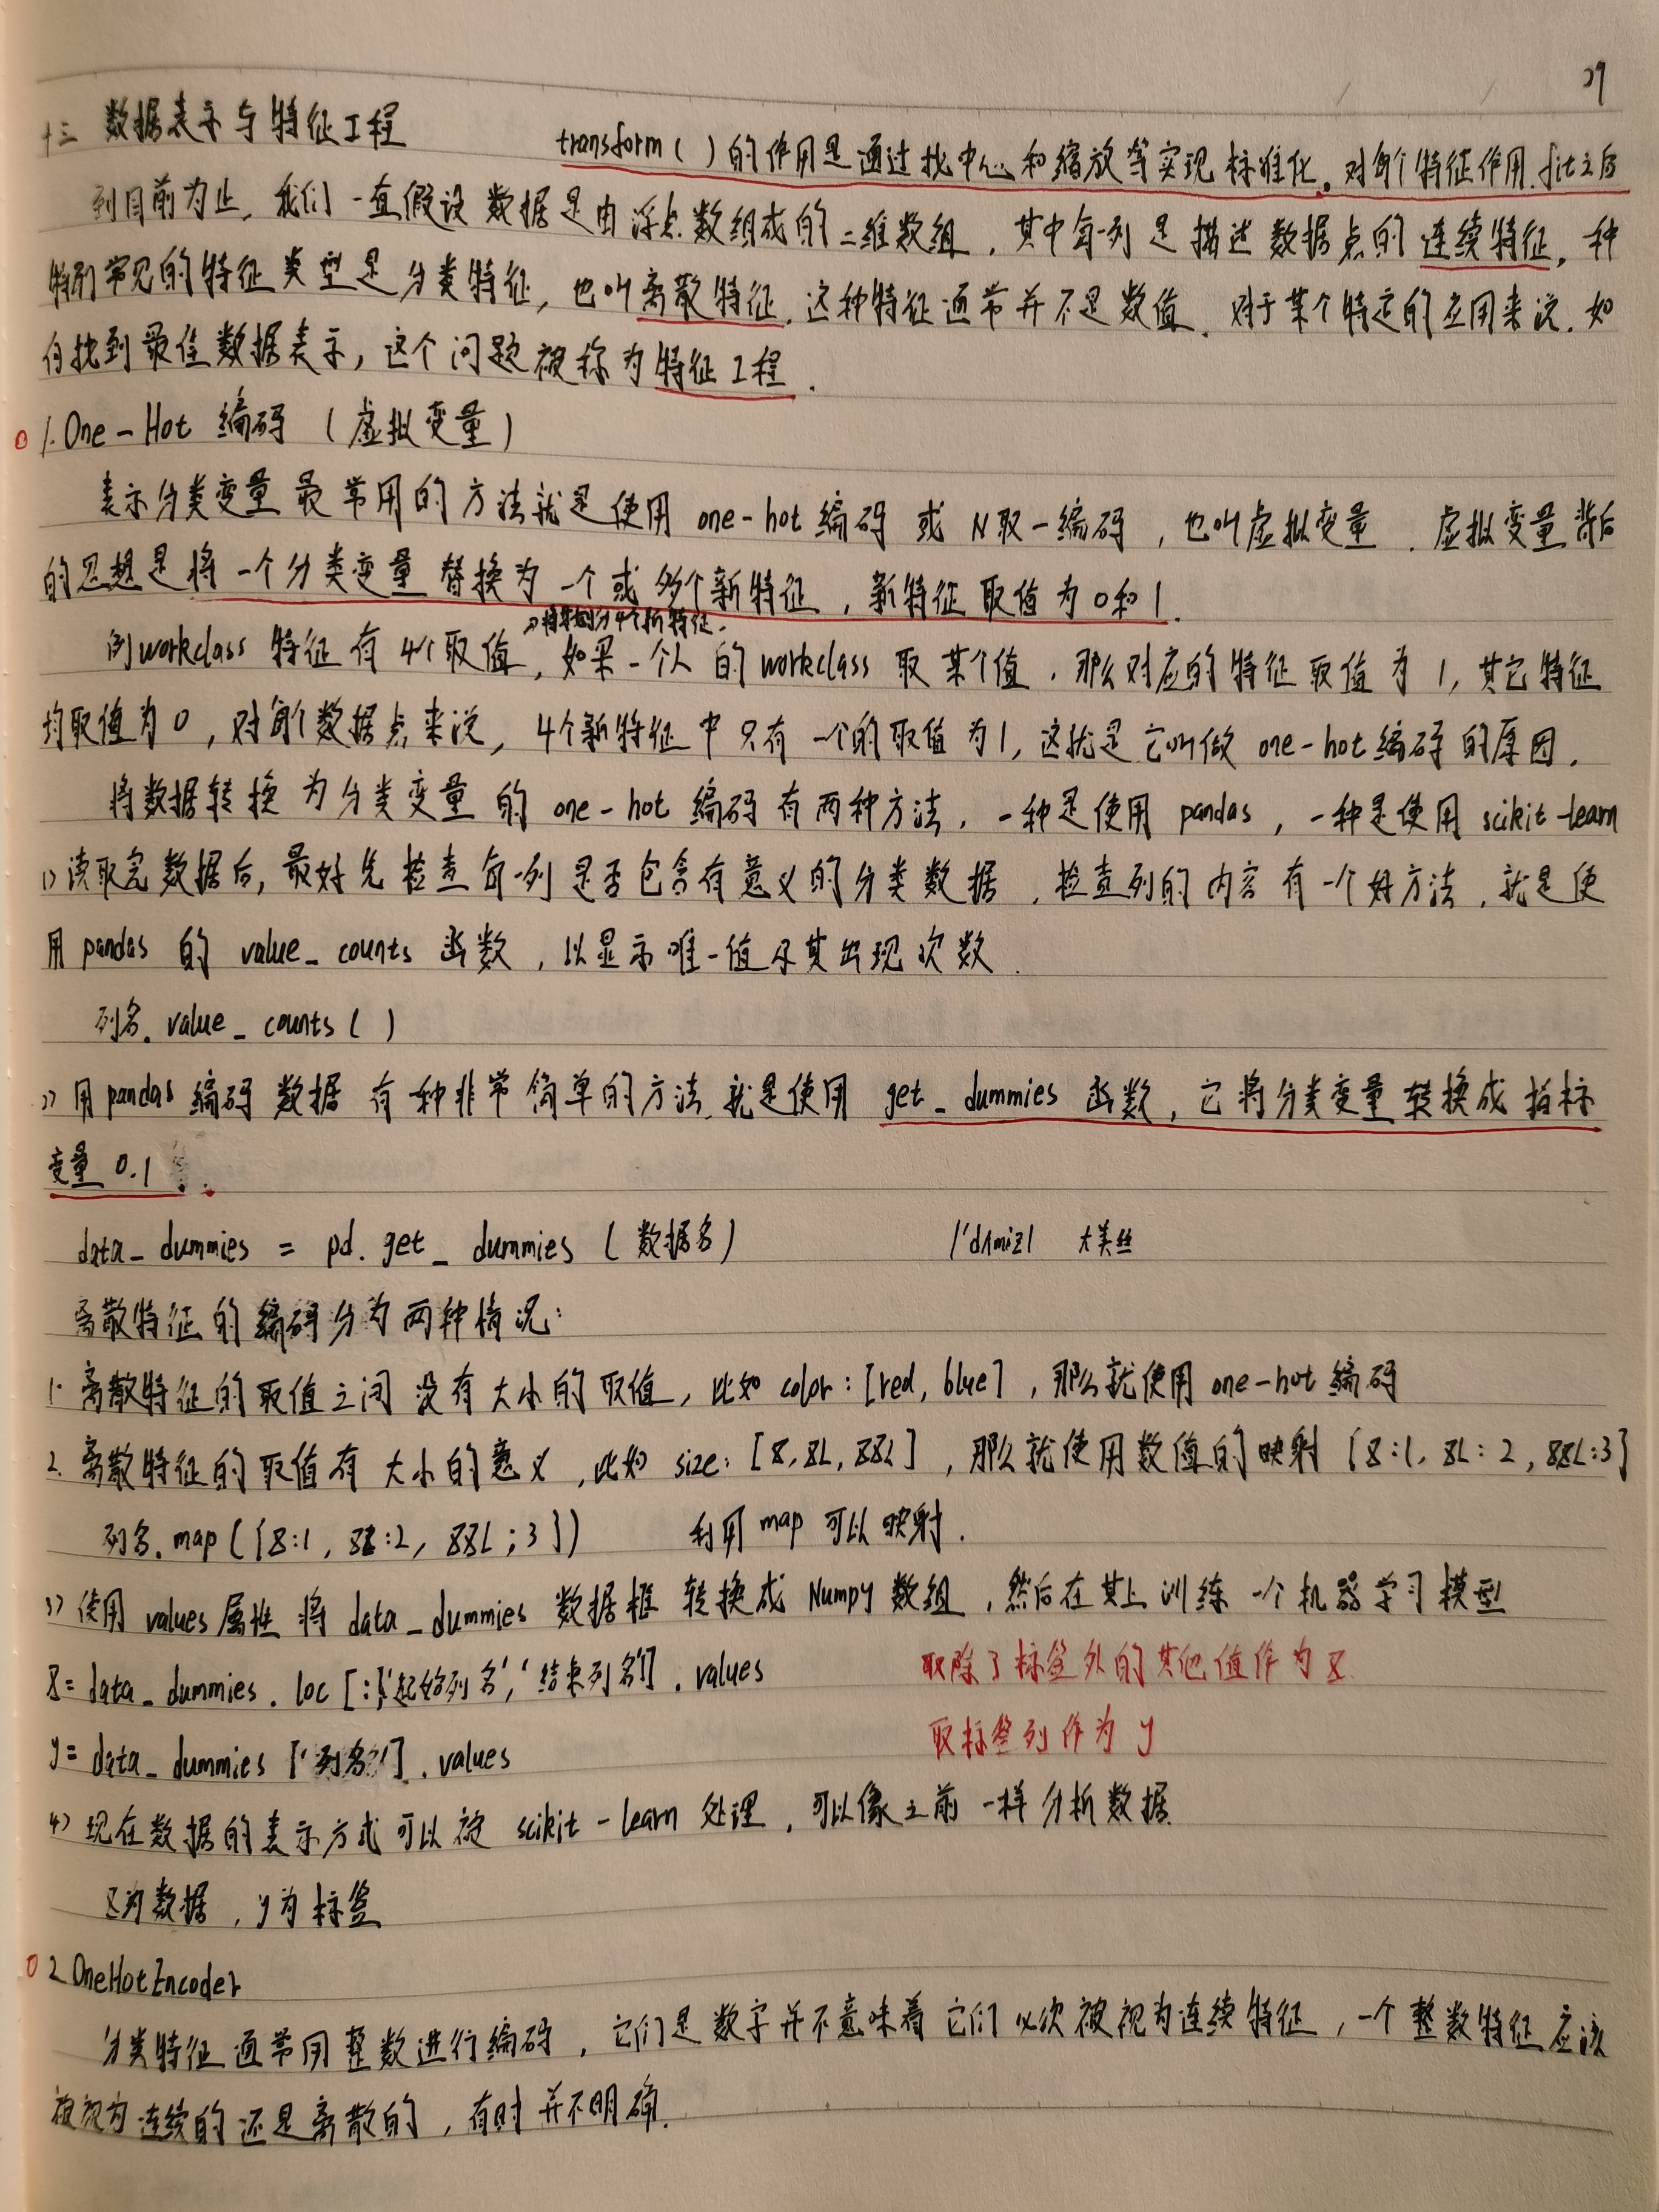 十三 数据表示与特征工程
transform()的作用是通过找中心和缩放等实现标准化。对每个特征作用.fit之后
到目前为止，我们一直假设数据是由浮点数组成的二维数组，其中每一列是描述数据点的连续特征，一种
特别常见的特征类型是分类特征，也叫离散特征，这种特征通常并不是数值．对于某个特定的应用来说．如
何找到最佳数据表示，这个问题被称为特征工程．
1.One-Hot 编码（虚拟变量）
表示分类变量最常用的方法就是使用 one-hot 编码 或 N取一编码，也叫虚拟变量．虚拟变量背后
的思想是将一个分类变量替换为一个或多个新特征，新特征取值为0和1．
例workclass 特征有4个取值，如果一个人的workclass 取某个值，那么对应的特征取值为1，其它特征
均取值为0，对每个数据点来说，4个新特征中只有一个的取值为1，这就是它叫做 one-hot 编码的原因．
将数据转换为分类变量的 one-hot 编码有两种方法，一种是使用 pandas，一种是使用 scikit-learn
1）读取完数据后，最好先检查每一列是否包含有意义的分类数据，检查列的内容有一个好方法，就是使
用 pandas 的 value_counts 函数，以显示唯一值及其出现次数．
列名.value_counts()
2）用pandas 编码数据有一种非常简单的方法，就是使用 get_dummies 函数，它将分类变量转换成指标
变量 0.1
data_dummies = pd.get_dummies（数据名） /'dʌmiz/ 大美丝
离散特征的编码分为两种情况：
1. 离散特征的取值之间没有大小的取值，比如 color：[red, blue]，那么就使用 one-hot 编码
2. 离散特征的取值有大小的意义，比如 size：[X, XL, XXL]，那么就使用数值的映射 {X:1, XL:2, XXL:3}
列名.map({X:1, XL:2, XXL;3}) 利用map可以映射．
3）使用 values属性 将 data_dummies 数据框 转换成 Numpy 数组，然后在其上训练一个机器学习模型
X= data_dummies.loc[:,'起始列名','结束列名'].values 取除了标签外的其他值作为X
y= data_dummies['列名'].values 取标签列作为 y
4）现在数据的表示方式可以被 scikit-learn 处理，可以像之前一样分析数据
X为数据，y为标签
2.OneHotEncoder
分类特征通常用整数进行编码，它们是数字并不意味着它们必须被视为连续特征，一个整数特征应该
被视为连续的还是离散的，有时并不明确．